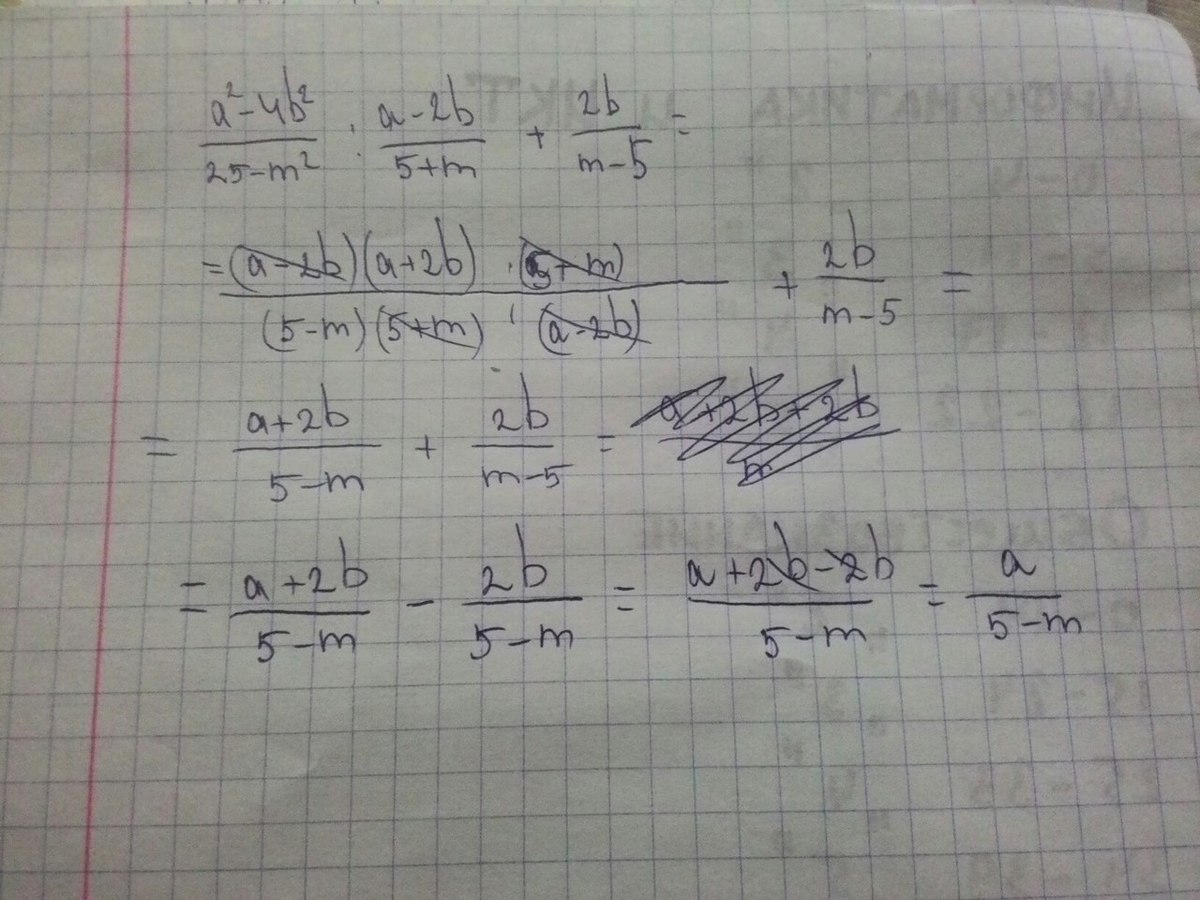 (a²-4b²)/(25-m²) : (a-2b)/(5+m) + 2b/(m-5) =
= ((a-2b)(a+2b) · (5+m))/((5-m)(5+m) · (a-2b)) + 2b/(m-5) =
= (a+2b)/(5-m) + 2b/(m-5) =
= (a+2b)/(5-m) - 2b/(5-m) = (a+2b-2b)/(5-m) = a/(5-m)